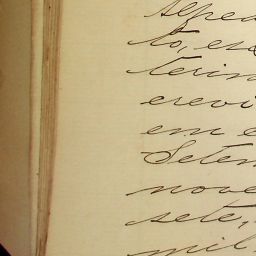 Alfred
to, es
terim
erevi
em e
Setem
nove
sete,
mil